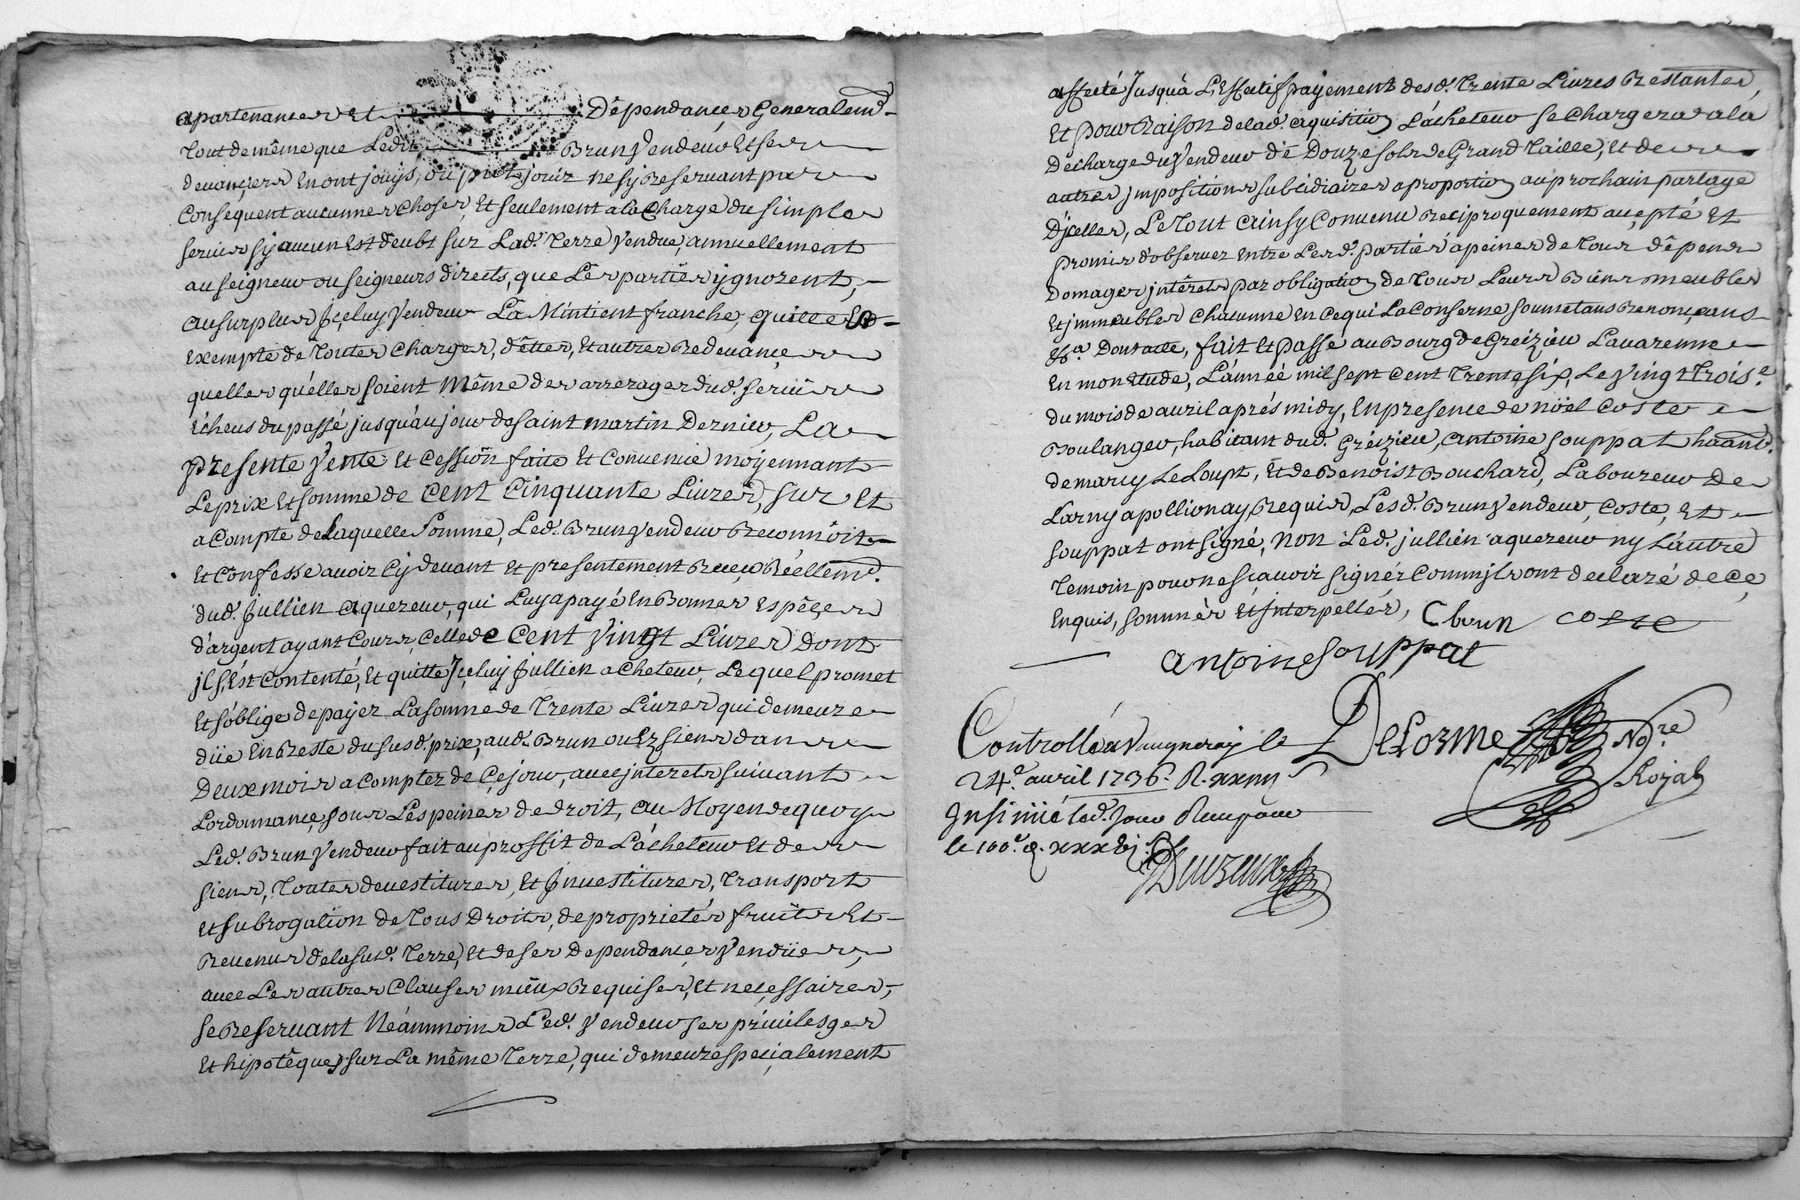 apartenances Et Dépendances Generalemt.
Tout de même que Ledit Brun Vendeur Et ses
devançiers En ont joüys, ou pût joüir ne sy Reservant par
Consequent aucunnes choses, Et seulement a la Charge du simple
servis sy aucun Est deubt sur Lad. Terre Vendue, annuellement
au seigneur ou seigneurs directs, que Lês partiës ygnorent,
au surplus Jçeluy Vendeur La Mintient franche, quille Et
Exempte de Toutes Charges, d'êttes, Et autres Redevançes
quelles quélles soient Même des arrerages dud. serviis
Echeus du passé jusquáu jour de saint martin Dernier, La
presente Vente Et Cession faite Et Convenüe moÿennant
Le prix Et somme de Cent Cinquante Livres, sur Et
a Compte de Laquelle somme, Led. Brun Vendeur Reconnoit
Et Confesse avoir Cy devant Et presentement Reçeu Réellemt.
dud. Jullien aquereur, qui Luy a payé En Bonnes Espêçes
d'argent ayant Cours, Celle de Cent Vingt Livres dont
jl s'Est Contenté, Et quitte Jçeluy Jullien acheteur, Lequel promet
Et s'oblige de payer La somme de Trente Livres qui demeure
düe En Reste du susd. prix, aud. Brun ou Ez siens dans
Deux mois a Compter de Çe jour, avec jnterets suivant
L'ordonnance, sous Les peines de droit, au Moyen de quoy
Led. Brun Vendeur fait au proffit de L'ácheteur Et des
siens, Toutes devestitures, Et Jnvestitures, Transport
Et subrogation de Tous Droits, de proprietés fruits Et
Revenus de la susd. Terre, Et de ses Dependances Vendües,
avec Les autres Clauses mieux Requises, Et neçessaires,
se Reservant Néanmoins Led. Vendeur ses privilesges
Et hipotêques sur La même Terre, qui demeure speçialement
affecté Jusquà L'Effectif payement desd. Trente Livres Restantes,
Et pour Raison de lad. aquisition L'ácheteur se Chargera a la
Decharge du Vendeur dé Douze sols de Grand Taille, Et des
autres jmpositions subcidiaires a proportion au prochain partage
D'jcelles, Le Tout Cainsy Convenu Reciproquement acepté Et
promis d'observer Entre Lesd. partiës a peines de Tous dépens
Domages jntérets par obligation de Tous Leurs Biens meubles
Et jmmeubles Chacunne En ce qui La Conserne soumetans Renonçeans
&a. Dont acte, fait Et passé au Bourg de Greizieu Lavarenne
En mon Etude, L'année mil sept Cent Trente six, Le Vingt Trois.e
du mois de avril aprés midy, En presence de nöel Coste
Boulanger, habitant dud. Greizieu, antoine souppat haant.
de marcy Le Loupt, Et de Benoist Bouchard, Laboureur De
Larny apollionay, Requis, Lesd. Brun Vendeur, Coste, Et
souppat ont signé, non Led. jullien aquereur ny L'autre
Temoin pour ne sçavoir signér Comm'jls ont declaré de Ce
Enquis, sommés Et jnterpellés, Cbrun coste
antoine souppat
Controllé a Vaugneray le DeLorme No.re
24.e avril 1736. R. xxiiii s Royal
Insinüé led. Jour